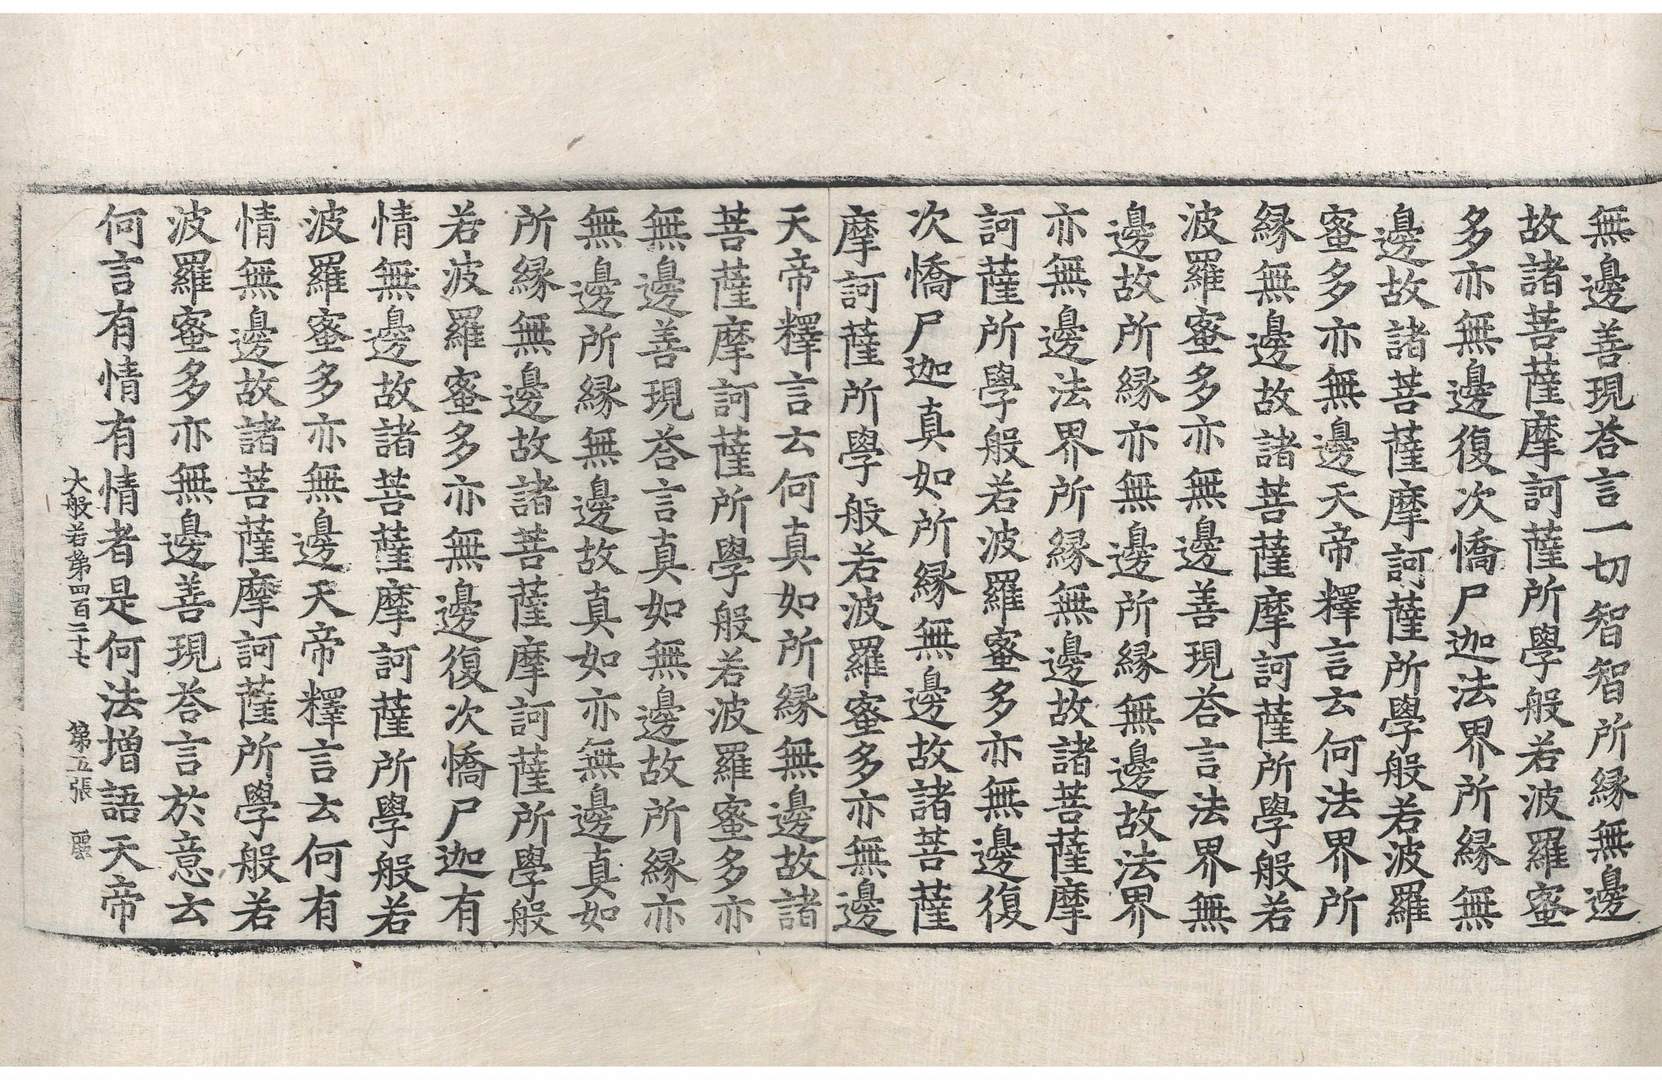 無邊善現荅言一切智智所縁無邊
故諸菩薩摩訶薩所學般若波羅蜜
多亦無邊復次憍尸迦法界所縁無
邊故諸菩薩摩訶薩所學般若波羅
蜜多亦無邊天帝釋言云何法界所
縁無邊故諸菩薩摩訶薩所學般若
波羅蜜多亦無邊善現荅言法界無
邊故所縁亦無邊所縁無邊故法界
亦無邊法界所縁無邊故諸菩薩摩
訶薩所學般若波羅蜜多亦無邊復
次憍尸迦真如所縁無邊故諸菩薩
摩訶薩所學般若波羅蜜多亦無邊
天帝釋言云何真如所縁無邊故諸
菩薩摩訶薩所學般若波羅蜜多亦
無邊善現荅言真如無邊故所縁亦
無邊所縁無邊故真如亦無邊真如
所縁無邊故諸菩薩摩訶薩所學般
若波羅蜜多亦無邊復次憍尸迦有
情無邊故諸菩薩摩訶薩所學般若
波羅蜜多亦無邊天帝釋言云何有
情無邊故諸菩薩摩訶薩所學般若
波羅蜜多亦無邊善現荅言於意云
何言有情有情者是何法増語天帝
大般若第四百二十七 第五張